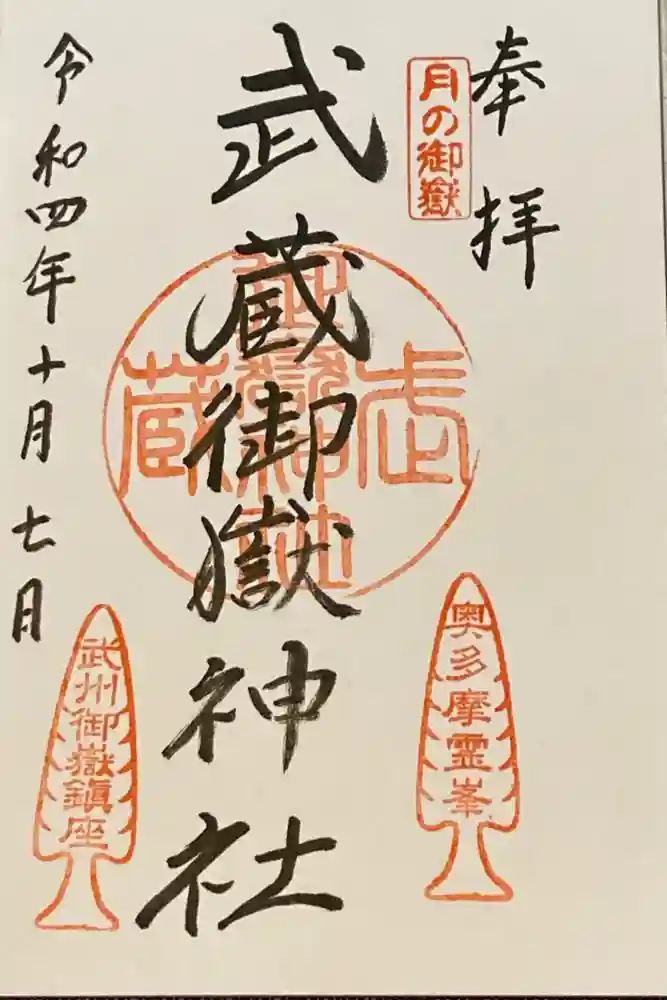 奉拝
月の御嶽
奥多摩霊峯
武蔵御嶽神社
武蔵御嶽神社
武州御嶽鎮座
令和四年十月七日